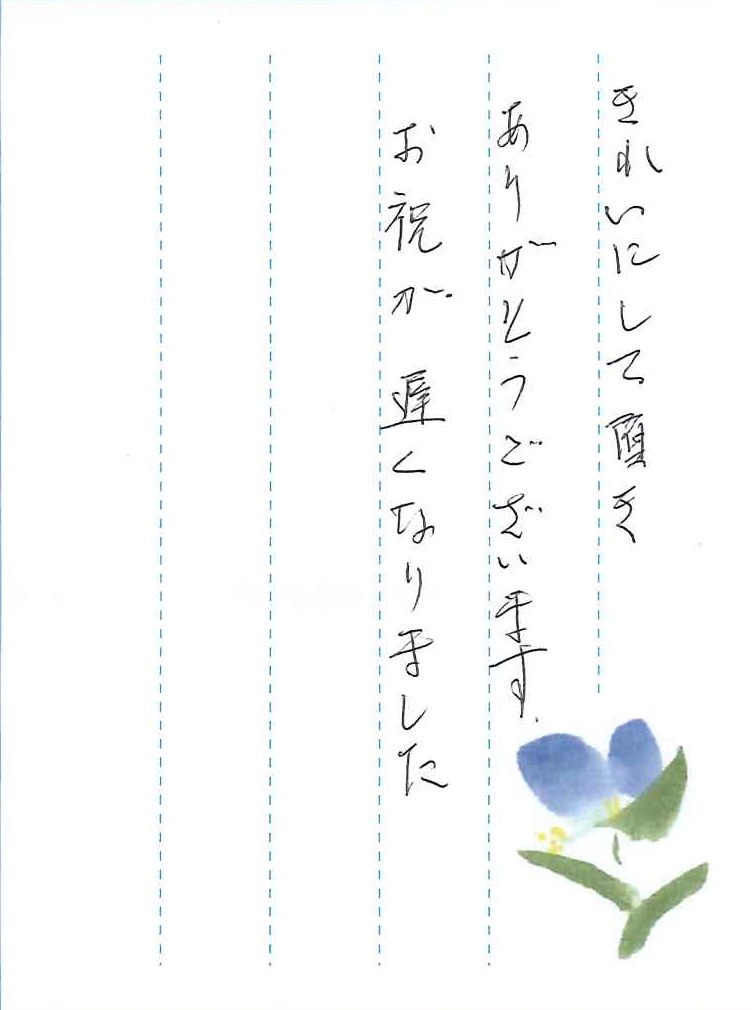 きれいにして頂き
ありがとうございます.
お祝が遅くなりました